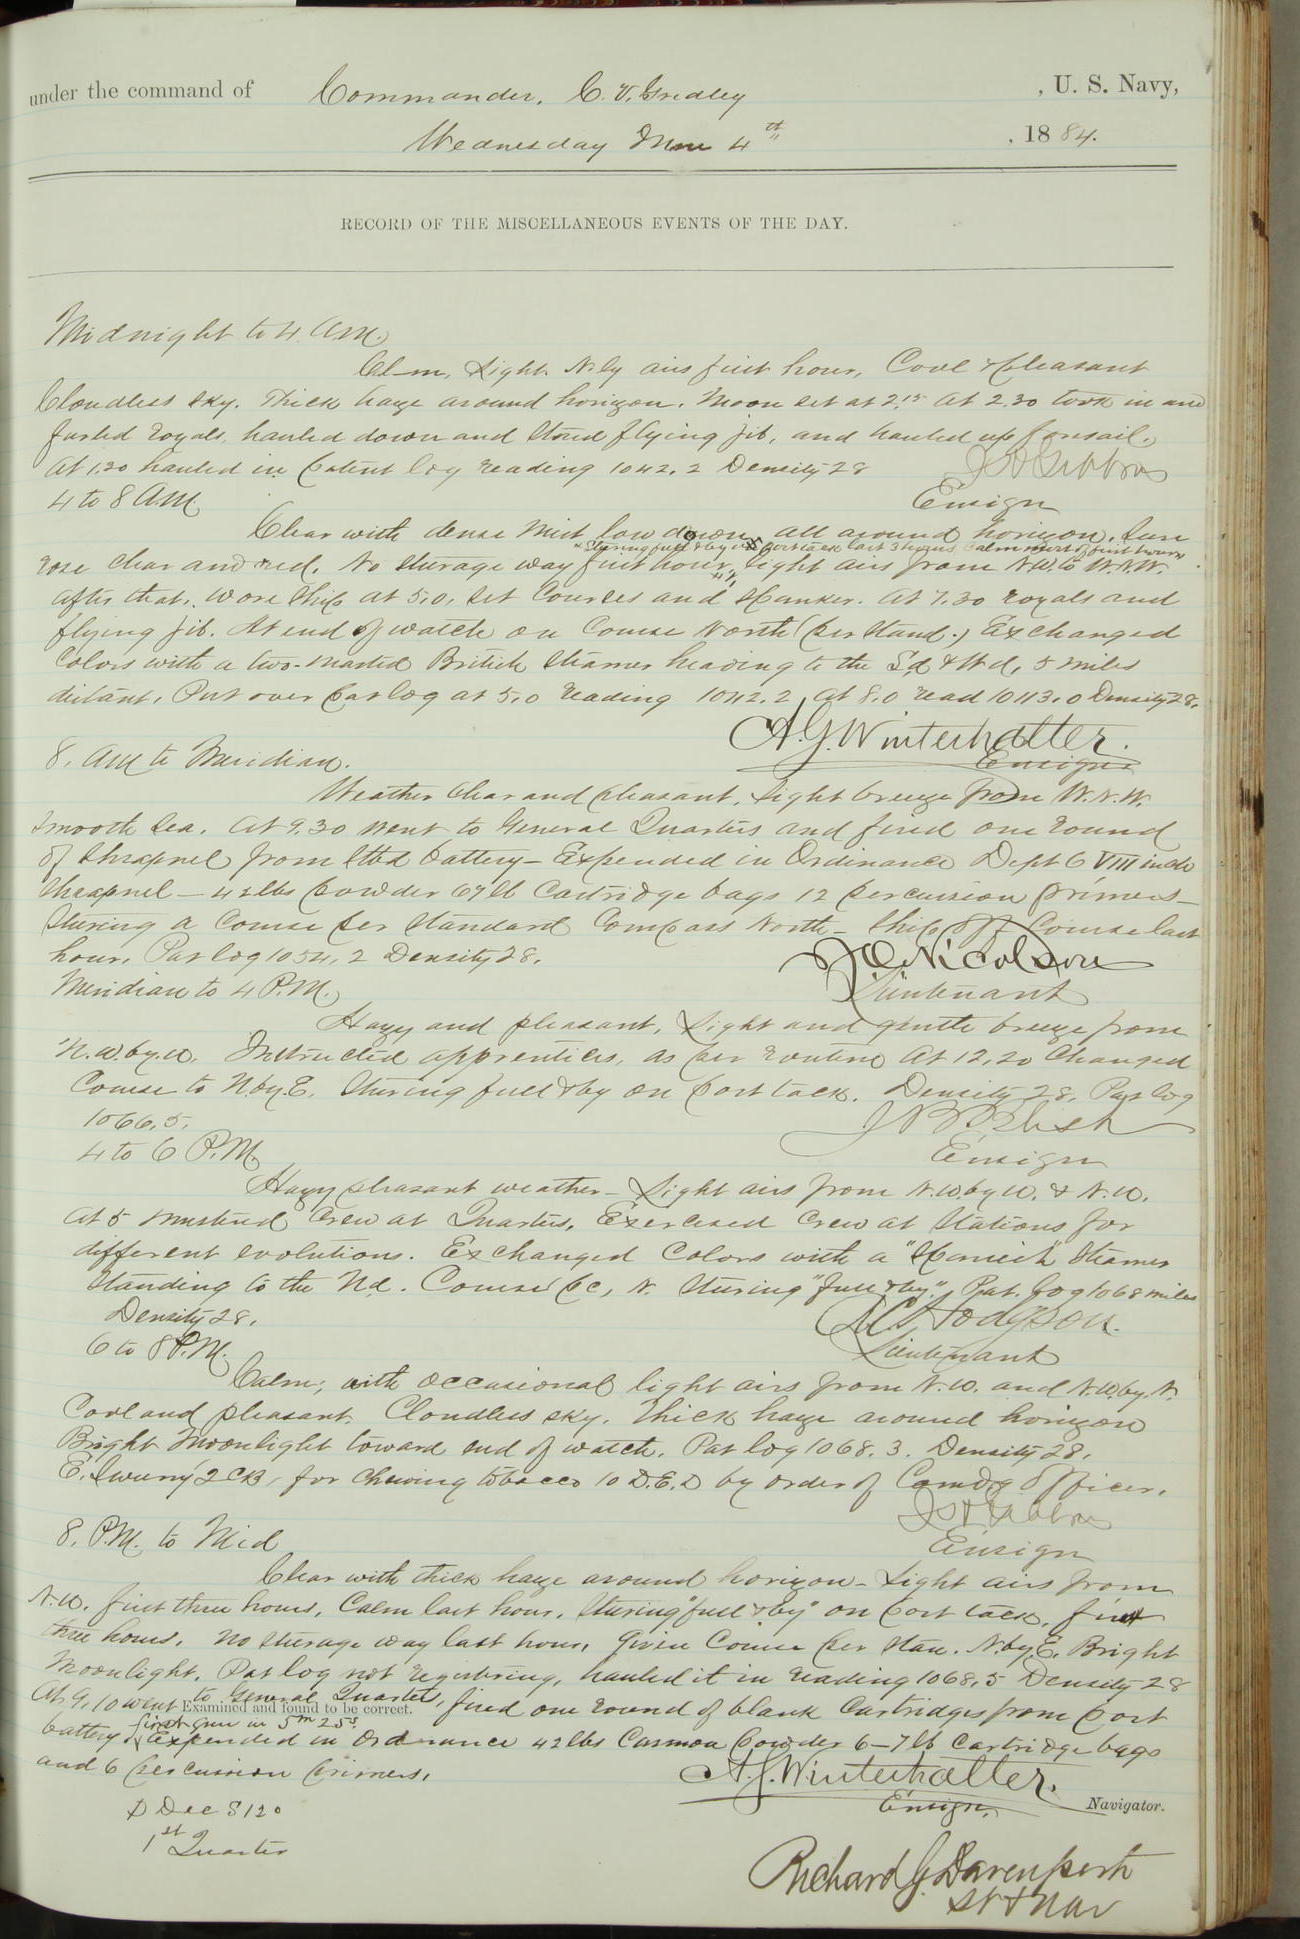 under the command of Commander, C. V. Gridley , U. S. Navy,
Wednesday June 4th , 1884.
RECORD OF THE MISCELLANEOUS EVENTS OF THE DAY.
Midnight to 4 A.M.
Calm, Light N'ly airs first hour, Cool & pleasant
Cloudless sky. Thick haze around horizon. Moon set at 2.15 At 2.30 took in and
furled royals, hauled down and stowed flying jib, and hauled up foresail.
At 1.20 hauled in patent log reading 1042.2 Density 28
4 to 8 A.M. Ensign
Clear with dense mist low down all around horizon. Sun
"Steering full & by" on port tack last 3 hours calm most of first hour
rose clear and red. No steerage way first hour, light airs from N.W. to W.N.W.
after that. Wore ship at 5.0, set Courses and Spanker. At 7.30 royals and
flying jib. At end of watch on Course North (per stand.) Exchanged
Colors with a two-masted British Steamer heading to the Sd & Wd, 5 miles
distant. Put over Pat log at 5.0 reading 1042.2, at 8.0 read 1043.0 Density 28.
A. G. Winterhalter.
8. AM to Meridian. Ensign
Weather Clear and pleasant, Light breeze from W.N.W.
Smooth Sea. At 9.30 went to General Quarters and fired one round
of Shrapnel from Stbd battery - Expended in Ordinance Dept 6 VIII inch
Shrapnel - 42 lbs powder 6 7 lb Cartridge bags 12 percussion primers -
Steering a Course per Standard Compass North - Ship off Course last
hour, Pat log 1054.2 Density 28. Nicolson
Meridian to 4 P.M. Lieutenant
Hazy and pleasant, Light and gentle breeze from
N.W. by W. Instructed apprentices, as per routine At 12.20 Changed
Course to N. by E. Steering full & by on port tack. Density 28, Pat log
1066.5.
4 to 6 P.M. Ensign
Hazy pleasant weather - Light airs from N.W. by W. & N.W.
At 5 mustered Crew at Quarters, Exercised Crew at Stations for
different evolutions. Exchanged Colors with a "Spanish" Steamer
Standing to the Nd. Course pc, N. Steering "full & by", Pat. log 1068 miles
Density 28. Hodgson.
6 to 8 P.M. Lieutenant
Calm, with occasional light airs from N.W. and N.W. by N.
Cool and pleasant. Cloudless sky. Thick haze around horizon
Bright Moonlight toward end of watch. Pat log 1068.3. Density 28.
for chewing tobacco 10 D.E.D by order of Comdg Officer.
8. P.M. to Mid Ensign
Clear with thick haze around horizon - Light airs from
N.W. first three hours, Calm last hour. Steering "full & by" on port tack, first
three hours. No steerage way last hour, Given Course per stan. N. by E. Bright
Moonlight. Pat log not registering, hauled it in reading 1068.5 Density 28
At 9.10 went to General Quarters, fired one round of blank Cartridges from port
Examined and found to be correct.
battery first gun in 5m 25s, Expended in Ordnance 42 lbs Cannon Powder 6-7 lb Cartridge bags
and 6 percussion primers.
A. G. Winterhalter.
Ensign. Navigator.
Dec S 12°
1st Quarter
Richard G. Davenport
Lt & Nav